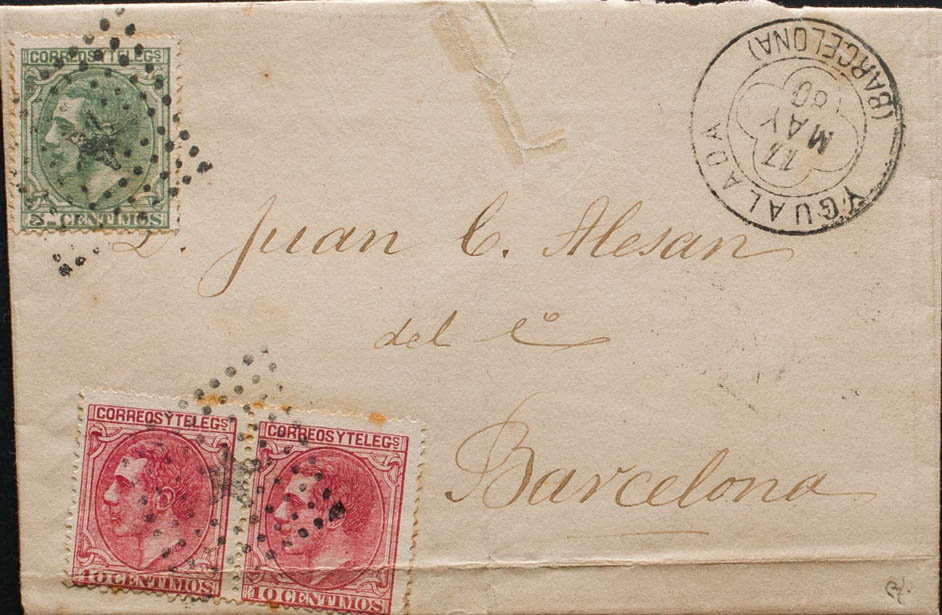 CORREOS Y TELEGS
5 CENTIMOS
YGUALADA
(BARCELONA)
MAY
80
D. Juan C. Alesan
del Cº
Barcelona
CORREOS Y TELEGS
10 CENTIMOS
CORREOS Y TELEGS
10 CENTIMOS